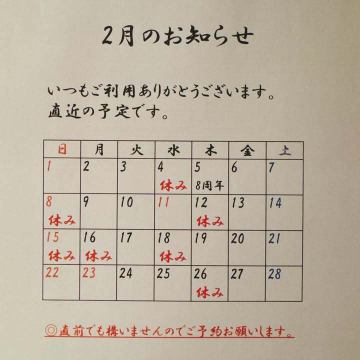 2月のお知らせ
いつもご利用ありがとうございます。
直近の予定です。
日 月 火 水 木 金 土
1 2 3 4 5 6 7
休み 8周年
8 9 10 11 12 13 14
休み 休み
15 16 17 18 19 20 21
休み 休み 休み
22 23 24 25 26 27 28
休み
◎直前でも構いませんのでご予約お願いします。